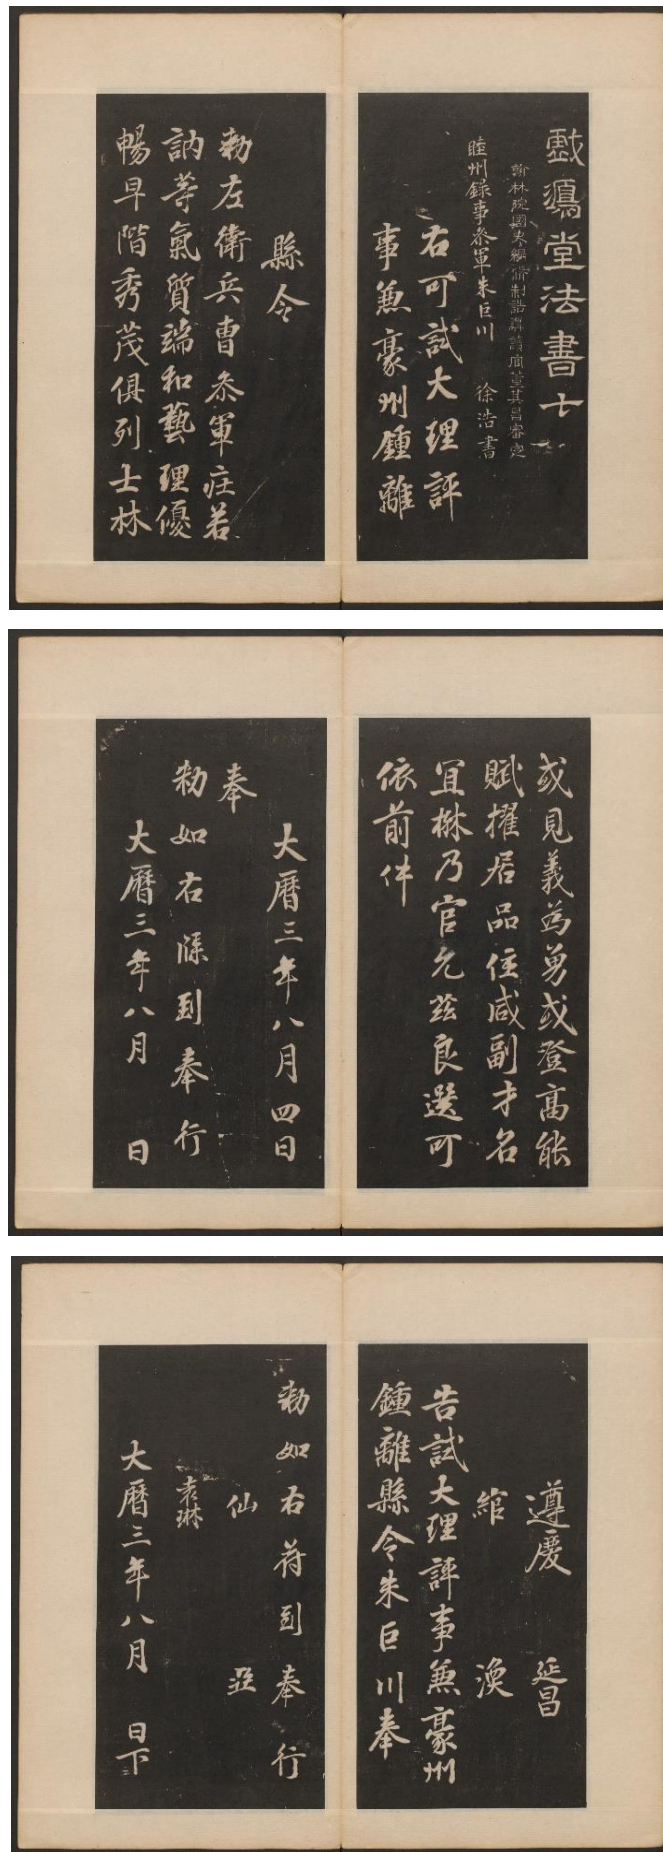 戲鴻堂法書七
翰林院國史編修制誥講讀官董其昌審定
睦州錄事叅軍朱巨川　徐浩書
右可試大理評
事兼豪州鍾離
縣令
勑左衛兵曹叅軍庄若
訥等氣質端和藝理優
暢早階秀茂俱列士林
或見義為勇或登高能
賦擢居品位咸副才名
宜楙乃官允茲良選可
依前件
大曆三年八月四日
奉
勑如右牒到奉行
大曆三年八月　日
遵慶　延昌
綰　渙
告試大理評事兼豪州
鍾離縣令朱巨川奉
勑如右符到奉行
仙　亞
袁琳
大曆三年八月　日下